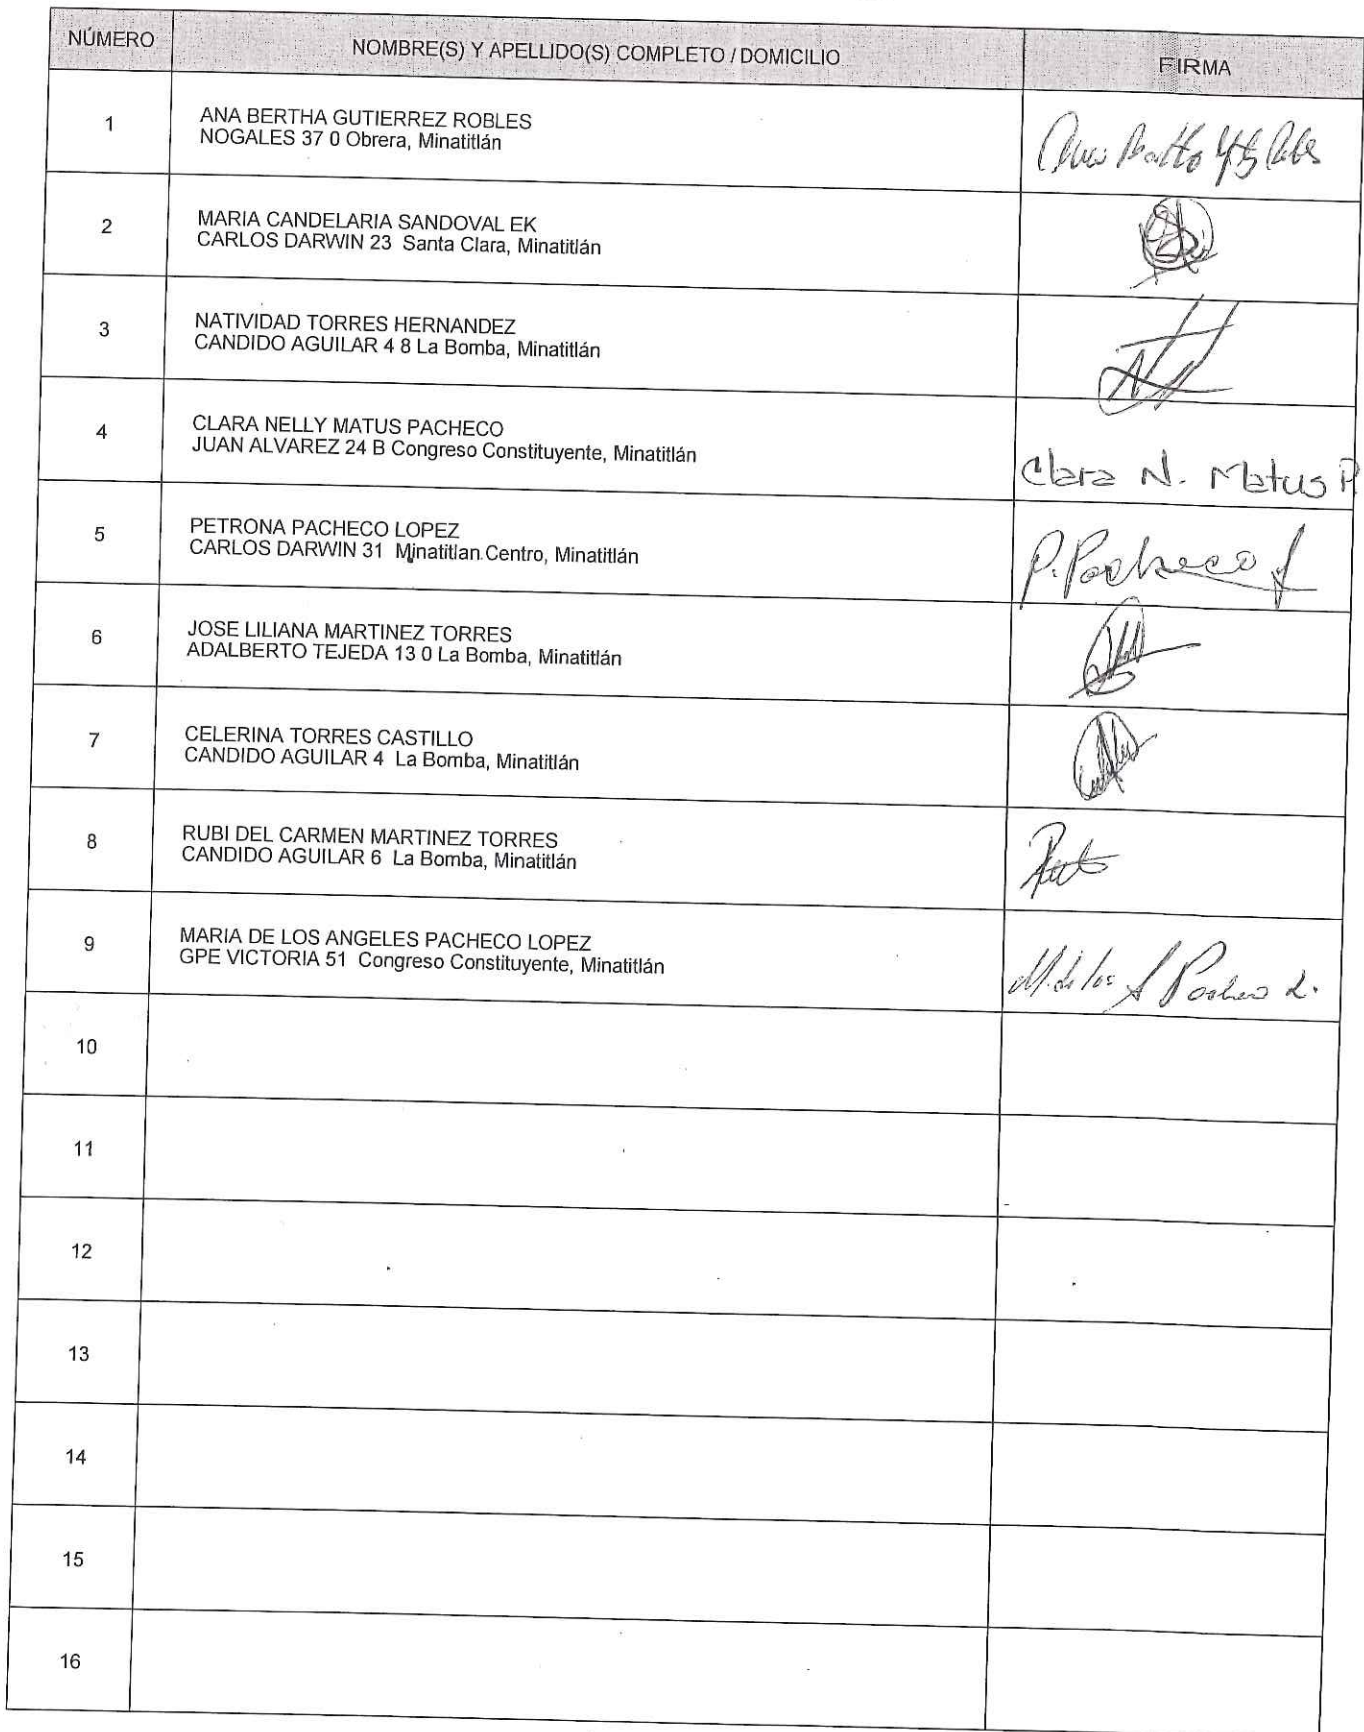 NÚMERO
NOMBRE(S) Y APELLIDO(S) COMPLETO / DOMICILIO
FIRMA
1
ANA BERTHA GUTIERREZ ROBLES
NOGALES 37 0 Obrera, Minatitlán
2
MARIA CANDELARIA SANDOVAL EK
CARLOS DARWIN 23 Santa Clara, Minatitlán
3
NATIVIDAD TORRES HERNANDEZ
CANDIDO AGUILAR 4 8 La Bomba, Minatitlán
4
CLARA NELLY MATUS PACHECO
JUAN ALVAREZ 24 B Congreso Constituyente, Minatitlán
Clara N. Matus P.
5
PETRONA PACHECO LOPEZ
CARLOS DARWIN 31 Minatitlan Centro, Minatitlán
P. Pacheco L
6
JOSE LILIANA MARTINEZ TORRES
ADALBERTO TEJEDA 13 0 La Bomba, Minatitlán
7
CELERINA TORRES CASTILLO
CANDIDO AGUILAR 4 La Bomba, Minatitlán
8
RUBI DEL CARMEN MARTINEZ TORRES
CANDIDO AGUILAR 6 La Bomba, Minatitlán
9
MARIA DE LOS ANGELES PACHECO LOPEZ
GPE VICTORIA 51 Congreso Constituyente, Minatitlán
M. de los A Pacheco L.
10
11
12
13
14
15
16